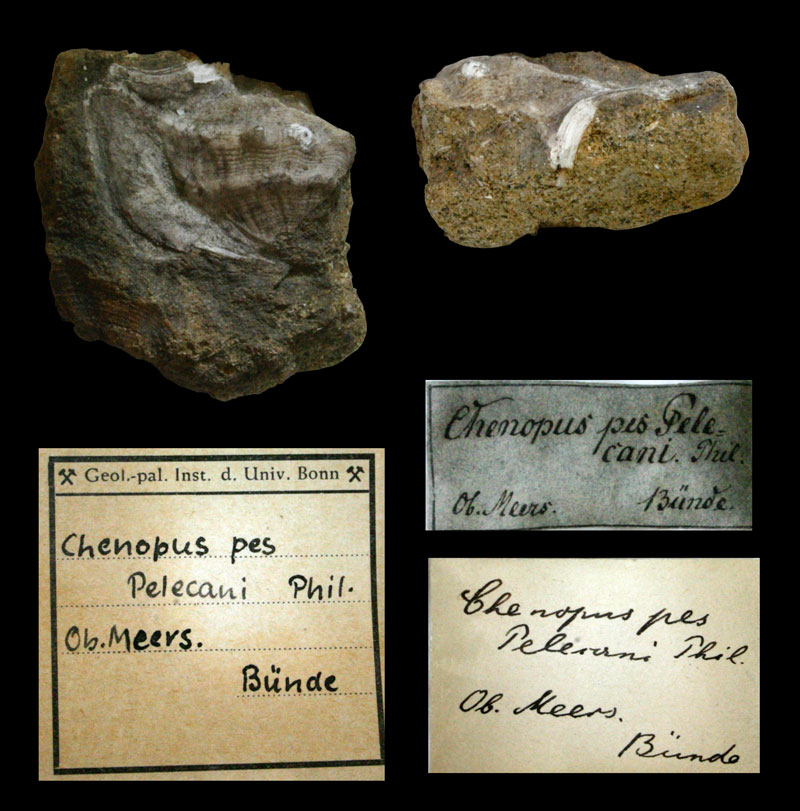 Chenopus pes Pele-
cani. Phil.
Ob. Meers. Bünde.
Geol.-pal. Inst. d. Univ. Bonn
Chenopus pes
Pelecani Phil.
Ob. Meers.
Bünde
Chenopus pes
Pelecani Phil.
Ob. Meers.
Bünde